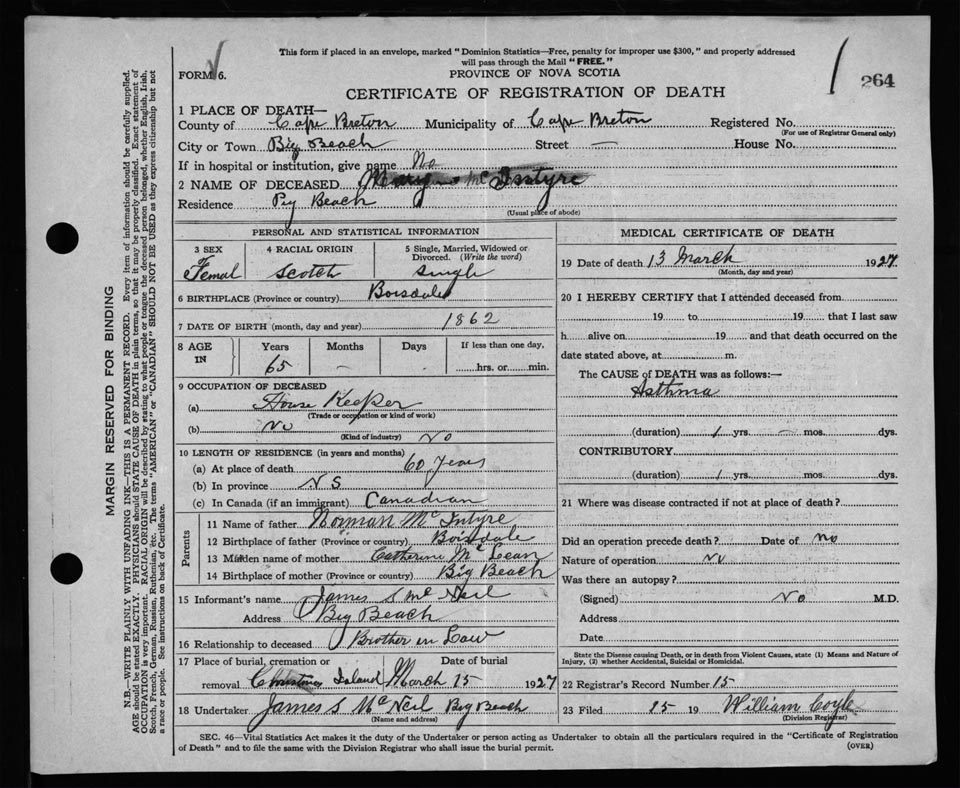 This form if placed in an envelope, marked "Dominion Statistics—Free, penalty for improper use $300," and properly addressed
will pass through the Mail "FREE."
FORM 6.
PROVINCE OF NOVA SCOTIA
264
CERTIFICATE OF REGISTRATION OF DEATH
1 PLACE OF DEATH—
County of Cape Breton Municipality of Cape Breton Registered No.
(For use of Registrar General only)
City or Town Big Beach Street — House No.
If in hospital or institution, give name No
2 NAME OF DECEASED Mary Mc
Residence Big Beach
(Usual place of abode)
PERSONAL AND STATISTICAL INFORMATION
3 SEX 4 RACIAL ORIGIN 5 Single, Married, Widowed or
Divorced. (Write the word)
Femal Scotch Single
6 BIRTHPLACE (Province or country) Boisdale
7 DATE OF BIRTH (month, day and year) 1862
8 AGE IN Years Months Days If less than one day,
65 — hrs. or min.
9 OCCUPATION OF DECEASED
(a) House Keeper
(Trade or occupation or kind of work)
(b) No
(Kind of industry) No
10 LENGTH OF RESIDENCE (in years and months)
(a) At place of death 60 Years
(b) In province N S
(c) In Canada (if an immigrant) Canadian
Parents
11 Name of father Norman McIntyre
12 Birthplace of father (Province or country) Boisdale
13 Maiden name of mother Catherine McLean
14 Birthplace of mother (Province or country) Big Beach
15 Informant's name James S McNeil
Address Big Beach
16 Relationship to deceased Brother in Law
17 Place of burial, cremation or Date of burial
removal Christmas Island March 15 1927
18 Undertaker James S McNeil Big Beach
(Name and address)
MEDICAL CERTIFICATE OF DEATH
19 Date of death 13 March 1927
(Month, day and year)
20 I HEREBY CERTIFY that I attended deceased from
19 to 19 that I last saw
h alive on 19 and that death occurred on the
date stated above, at m.
The CAUSE of DEATH was as follows:—
Asthma
(duration) 1 yrs. — mos. dys.
CONTRIBUTORY
(duration) 1 yrs. mos. dys.
21 Where was disease contracted if not at place of death?
Did an operation precede death? Date of no
Nature of operation No
Was there an autopsy?
(Signed) No M.D.
Address
Date
State the Disease causing Death, or in death from Violent Causes, state (1) Means and Nature of
Injury, (2) whether Accidental, Suicidal or Homicidal.
22 Registrar's Record Number 15
23 Filed 15 19 William Coyle
(Division Registrar)
SEC. 46—Vital Statistics Act makes it the duty of the Undertaker or person acting as Undertaker to obtain all the particulars required in the "Certificate of Registration
of Death" and to file the same with the Division Registrar who shall issue the burial permit. (OVER)
MARGIN RESERVED FOR BINDING
N.B.—WRITE PLAINLY WITH UNFADING INK—THIS IS A PERMANENT RECORD. Every item of information should be carefully supplied.
AGE should be stated EXACTLY. PHYSICIANS should STATE CAUSE OF DEATH in plain terms, so that it may be properly classified. Exact statement of
OCCUPATION is very important. RACIAL ORIGIN will be described by stating to what people or tongue the deceased person belonged, whether English, Irish,
Scotch, French, German, Russian, Ruthenian, Etc. The terms "AMERICAN" or "CANADIAN" SHOULD NOT BE USED as they express citizenship but not
a race or people. See instructions on back of Certificate.